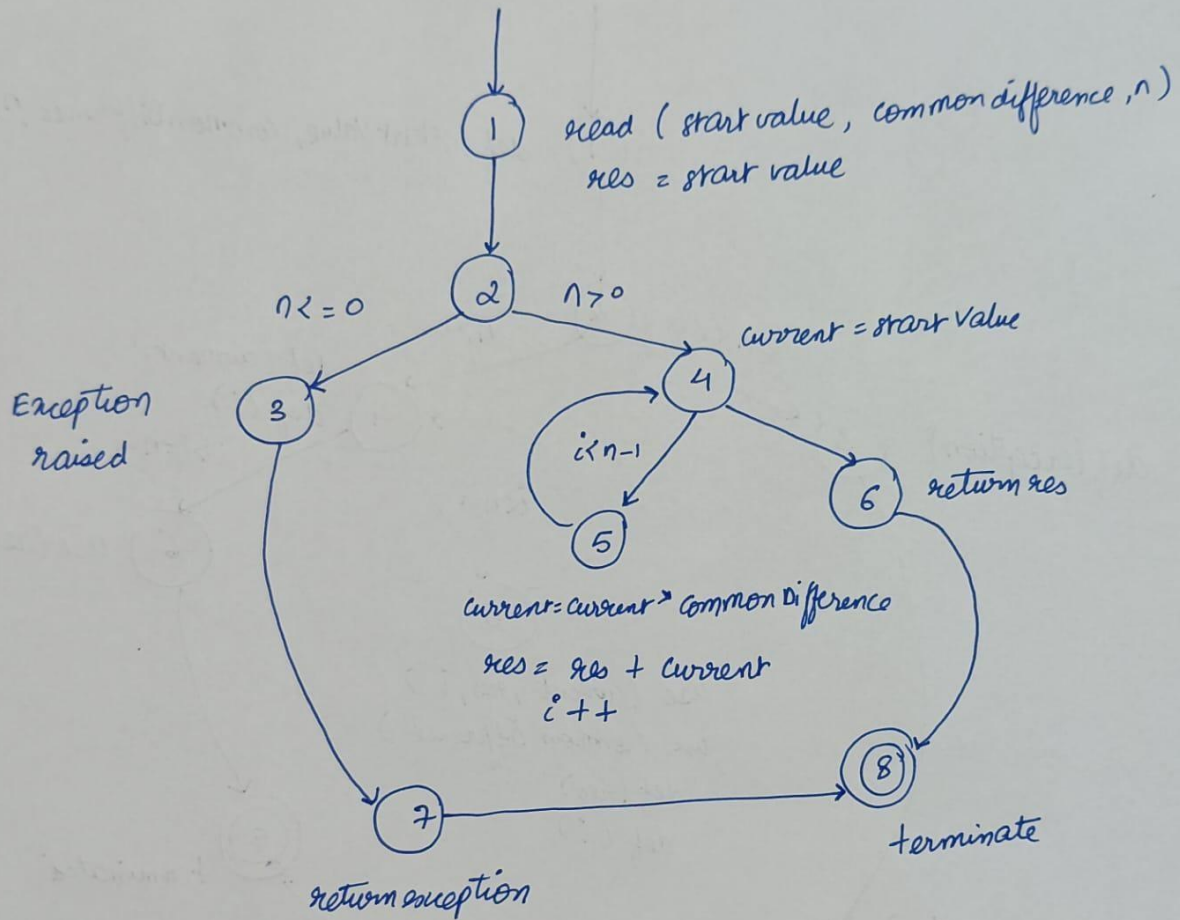 1
read (start value, common difference, n)
res = start value
2
n<=0
n>0
current = start Value
4
Exception
raised
3
i<n-1
6
return res
5
current=current* common Difference
res = res + current
i++
8
terminate
7
return exception